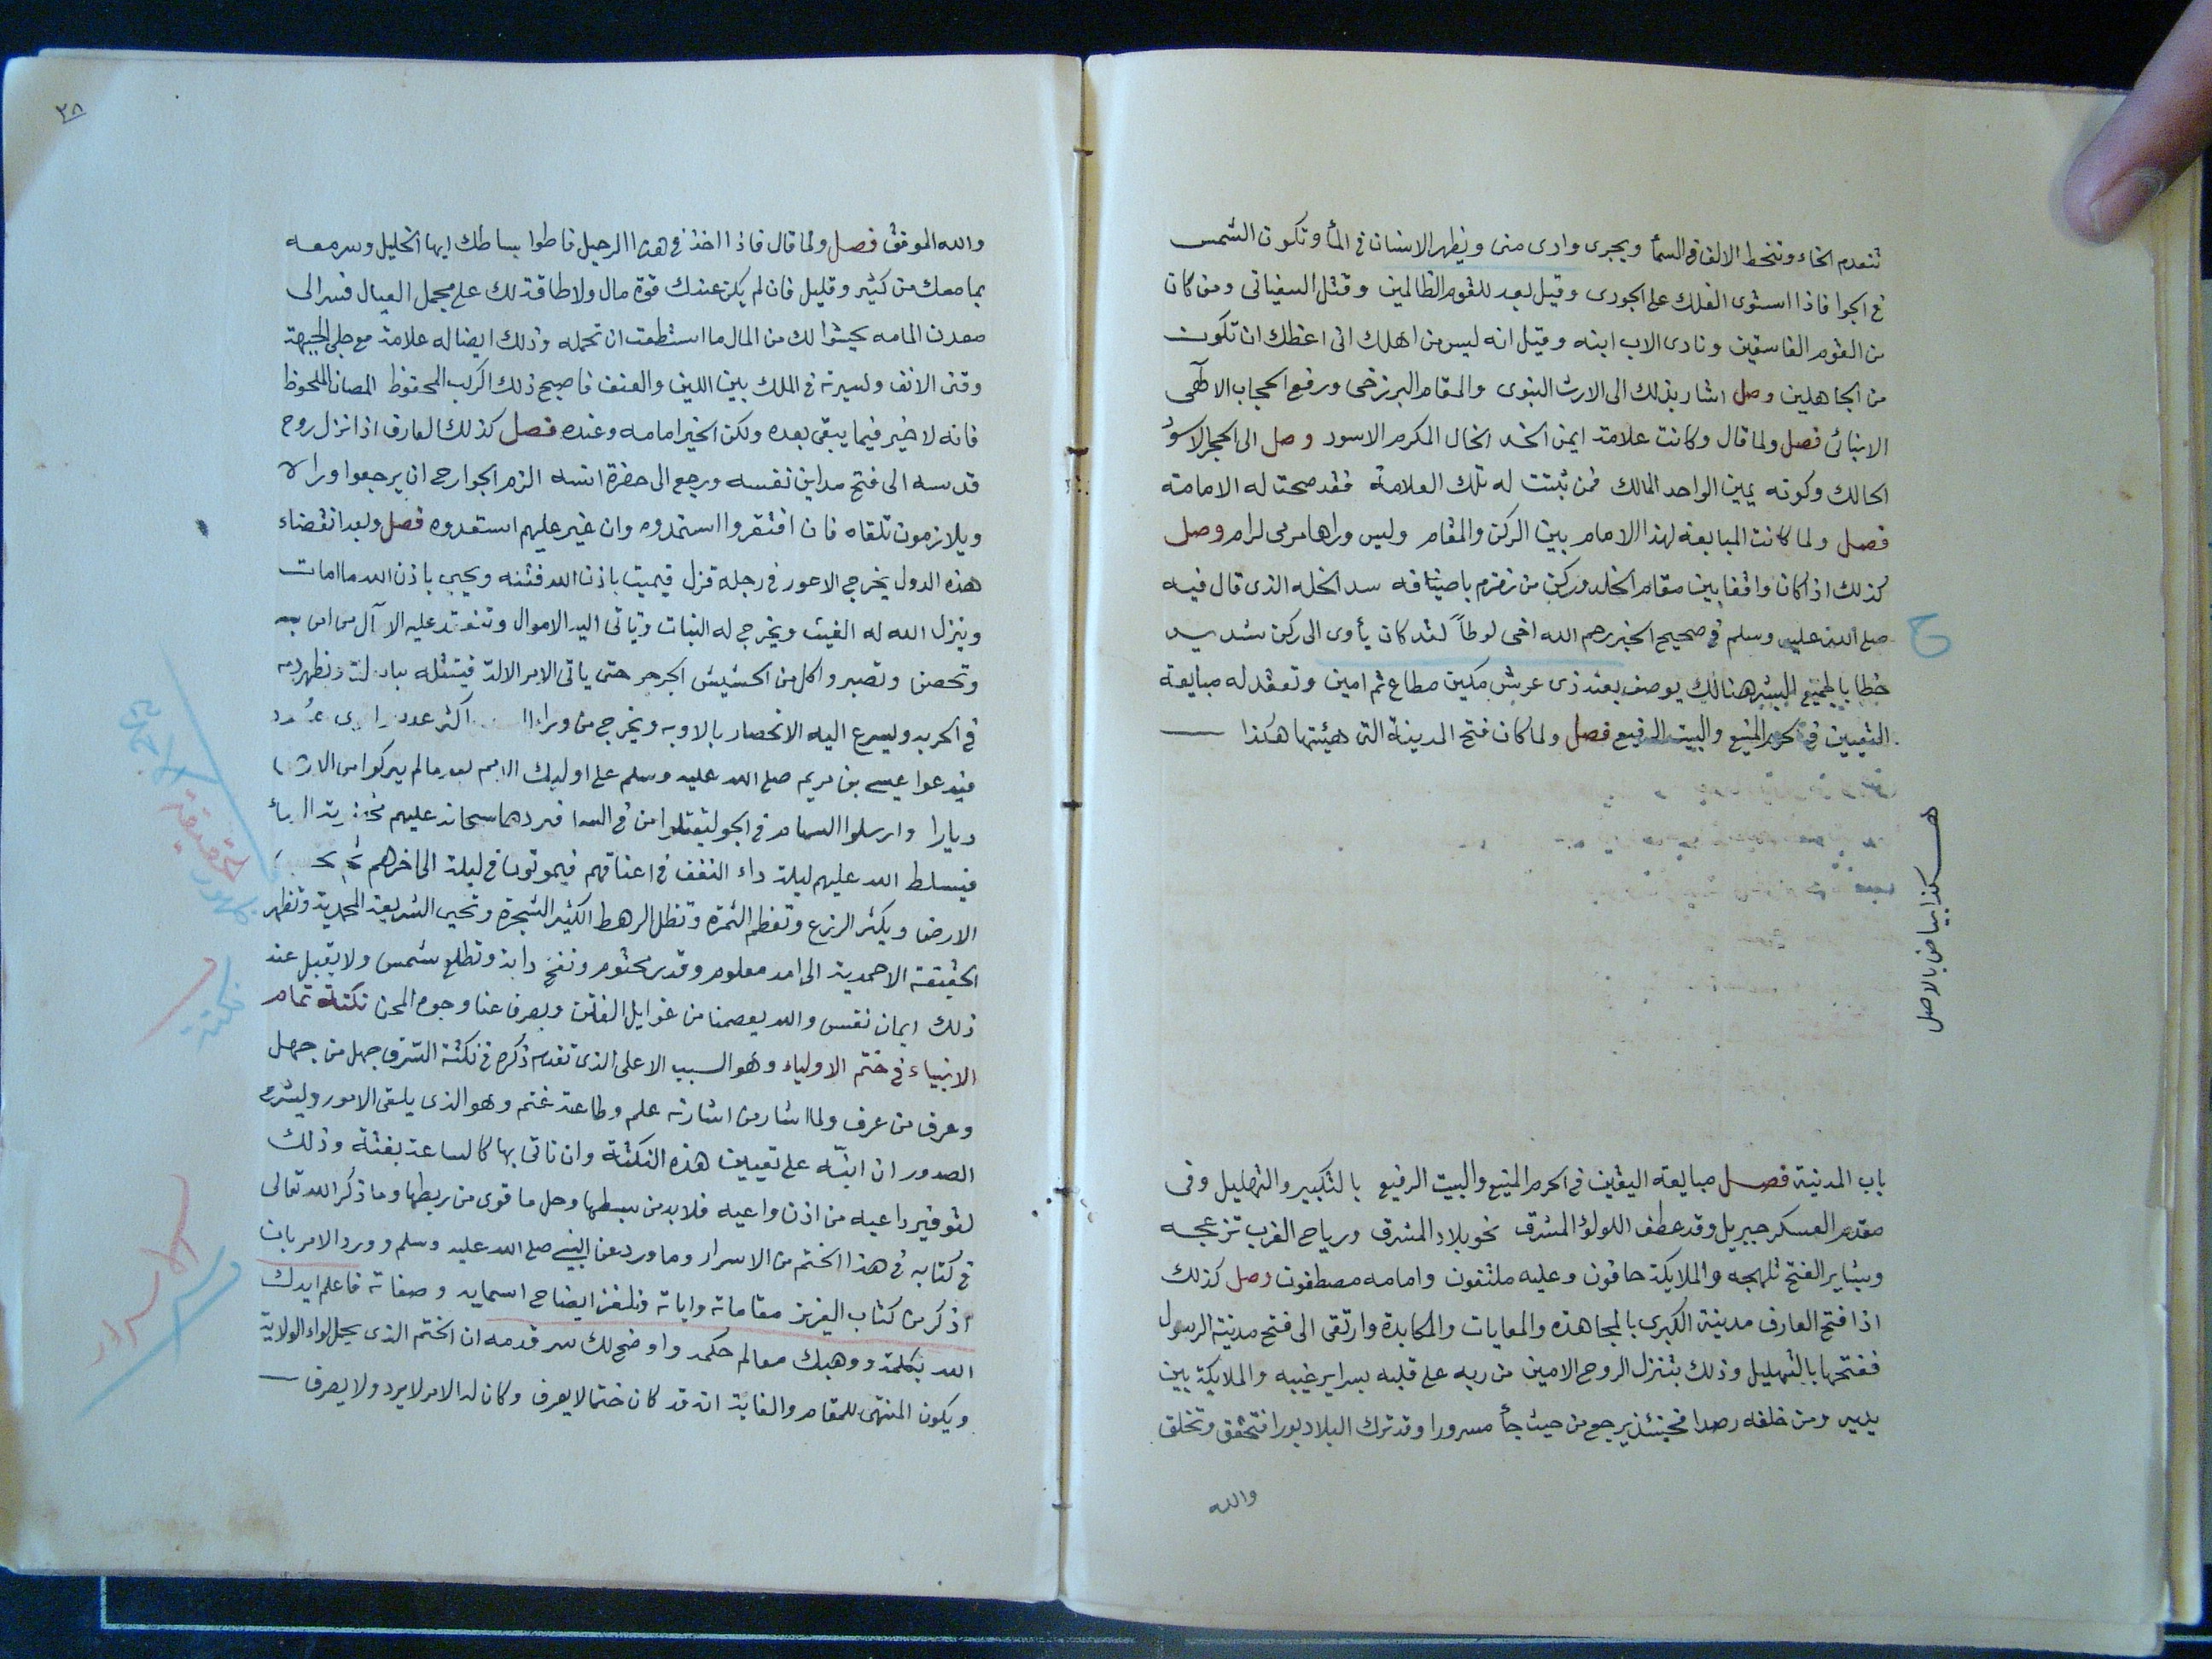 تنعدم الخاء وتنخط الالف في السمأ ويجرى وادى منى ويظهر الانسان في المأ وتكون الشمس
في الجوا فاذا استوى الفلك على الجودى وقيل بعد للقوم الظالمين وقتل السفيانى ومن كان
من القوم الفاسقين ونادى الاب ابنه وقيل انه ليس من اهلك انى اعظك ان تكون
من الجاهلين وصل اشار بذلك الى الارث النبوى والمقام البرزخى ورفع الحجاب الالهى
الانبائى فصل ولما قال وكانت علامة ايمن الخد الخال المكرم الاسود وصل الى الحجر الاسود
الحالك وكونه يمين الواحد المالك فمن ثبتت له تلك العلامة فقد صحت له الامامة
فصل ولما كانت المبايعة لهذا الامام بين الركن والمقام وليس وراها مرمى لرام وصل
كذلك اذا كان واقفا بين مقام الخلد وركن من زمزم باضيافه سد الخله الذى قال فيه
صلى الله عليه وسلم في صحيح الخبر رحم الله اخى لوطاً لقد كان يأوى الى ركن شديد
هنالك يوصف بعند ذى عرش مكين مطاع ثم امين وتعقد له مبايعة
التعيين في الحرم المنيع والبيت الرفيع فصل ولما كان فتح المدينة التى هيئتها هكذا
هكذا بياض بالاصل
باب المدينة فصل مبايعة اليقين في الحرم المنيع والبيت الرفيع بالتكبير والتهليل وفى
مقدم العسكر جبريل وقد عطف اللولؤ المشرق نحو بلاد المشرق ورياح الغرب تزعجه
وبشاير الفتح تلهجه والملايكة حافون وعليه ملتفون وامامه مصطفون وصل كذلك
اذا فتح العارف مدينة الكبرى بالمجاهدة والمعايات والمكابدة وارتقى الى فتح مدينة الرسول
ففتحها بالتهليل وذلك بتنزل الروح الامين من ربه على قلبه بسراير غيبه والملايكة بين
يديه ومن خلفه رصدا فحينئذ يرجع من حيث جأ مسرورا وقد ترك البلاد بورا فتحقق وتخلق
والله
٣٨
والله الموفق فصل ولما قال فاذا اخذ في هذا الرحيل فاطوا بساطك ايها الخليل وسر معه
بما معك من كثير وقليل فان لم يكن عندك قوة مال ولا طاقة لك على محمل العيال فسر الى
معدن المامه يحيثوا لك من المال ما استطعت ان تحمله وذلك ايضا له علامة مع جلى الجبهة
وقنى الانف ولسيرته في الملك بين اللين والعنف فاصبح ذلك الركب المحفوظ المصان الملحوظ
فانه لا خير فيما يبقى بعده ولكن الخير امامه وعنده فصل كذلك العارف اذا نزل روح
قدسه الى فتح مداين نفسه ورجع الى حضرة انسه الزم الجوارح ان يرجعوا وراه
ويلازمون تلقاه فان افتقروا استمدوه وان غير عليهم استعدوه فصل وبعد انقضاء
هذه الدول يخرج الاعور في رجله قزل فيميت باذن الله فتنه ويحيى باذن الله ما امات
وينزل الله له الغيث ويخرج له النبات وتاتى اليه الاموال وتنعقد عليه الآمال
وتحصن وتصبر واكل من الحشيش الجرجر حتى ياتى الامر الالد فيقتله بباب لد وتظهر دمه
في الحربه وليسرع اليه الانحصار بالاوبه ويخرج من وراء اكثر عدد
فيدعوا عيسى بن مريم صلى الله عليه وسلم على اوليك الامم بعد ما لم يتركوا من الارض
ديارا وارسلوا السهام في الجو ليقتلوا من في السما فيردها سبحانه عليهم الدمأ
فيسلط الله عليهم ليلة داء النغف في اعناقهم فيموتون في ليلة الى اخرهم
الارض ويكثر الزرع وتعظم الثمرة وتظل الرهط الكثير الشجرة وتحيى الشريعة المحمدية وتظهر
الحقيقة الاحمدية الى امد معلوم وقدر محتوم ونفخ دابة وتطلع شمس ولا يقبل عند
ذلك ايمان نفس والله يعصمنا من غوايل الفتن ويصرف عنا وجوه المحن نكتة تمام
الانبياء في ختم الاولياء وهو السبب الاعلى الذى تقدم ذكره في نكتة الشرف جهل من جهل
وعرف من عرف ولما اشار من اشارته علم وطاعته غنم وهو الذى يلقى الامور وليشرح
الصدور ان انبّه على تعيين هذه النكتة وان تاتى بها كالساعة بغتة وذلك
لتوفير داعيه من اذن واعيه فلا بد من بسطها وحل ما قوى من ربطها وما ذكر الله تعالى
في كتابه في هذا الختم من الاسرار وما ورد عن النبى صلى الله عليه وسلم وورد الامر بان
اذكر من كتاب العزيز مقاماته واياته ونلغز ايضاح اسمايه وصفاته فاعلم ايدك
الله بكلمته ووهبك معالم حكمه واوضح لك سر قدمه ان الختم الذى يحمل لواء الولاية
ويكون المنتهى للمقام والغاية انه قد كان ختما لا يعرف وكان له الامر لا يرد ولا يصرف
ظهور الحقيقة الاحمدية
نكتة